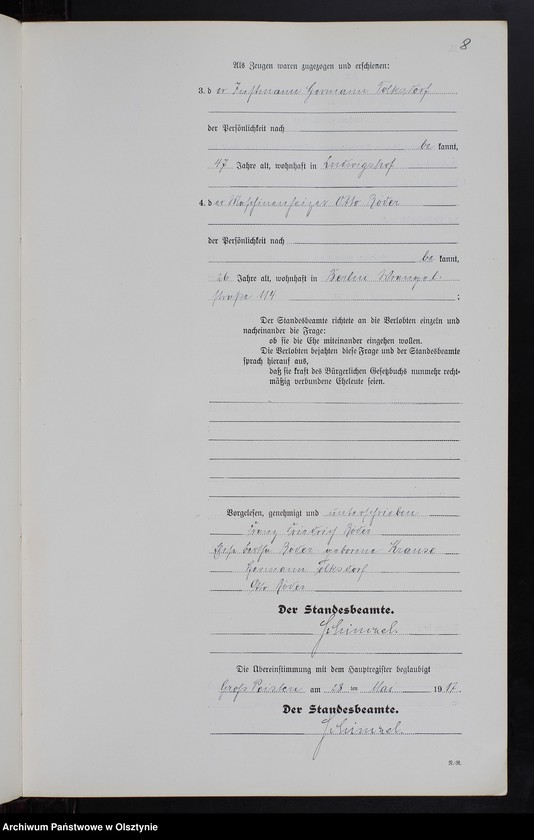 8
Als Zeugen waren zugezogen und erschienen:
3. d er Instmann Hermann Folksdorf
der Persönlichkeit nach
be kannt,
47 Jahre alt, wohnhaft in Ludwigshof
4. d er Maschinenheizer Otto Röder
der Persönlichkeit nach
be kannt,
26 Jahre alt, wohnhaft in Berlin Wrangel-
straße 114 ;
Der Standesbeamte richtete an die Verlobten einzeln und
nacheinander die Frage:
ob sie die Ehe miteinander eingehen wollen.
Die Verlobten bejahten diese Frage und der Standesbeamte
sprach hierauf aus,
daß sie kraft des Bürgerlichen Gesetzbuchs nunmehr recht-
mäßig verbundene Eheleute seien.
Vorgelesen, genehmigt und unterschrieben
Franz Friedrich Röder
Bertha Röder geborene Krause
Hermann Folksdorf
Otto Röder
Der Standesbeamte.
Schimmel
Die Übereinstimmung mit dem Hauptregister beglaubigt
Groß Peisten am 28 ten Mai 1917.
Der Standesbeamte.
Schimmel
Archiwum Państwowe w Olsztynie